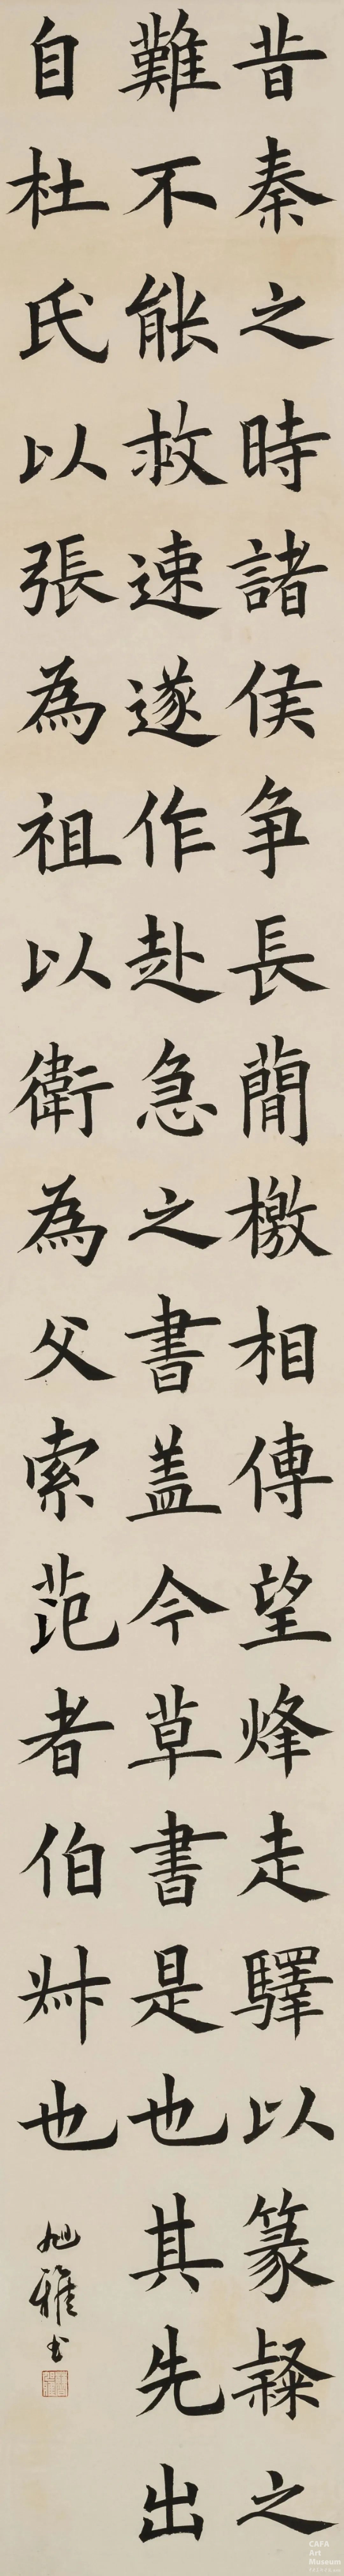 昔秦之時諸侯争長簡檄相傳望烽走驛以篆隸之
難不能救速遂作赴急之書盖今草書是也其先出
自杜氏以張為祖以衛為父索范者伯叔也
雅书
CAFA
Art
Museum